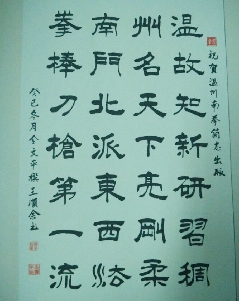 祝賀温州南拳簡志出版
温故知新研習稠
州名天下亮剛柔
南門北派東西法
拳棒刀槍第一流
癸巳冬月金文平撰王順